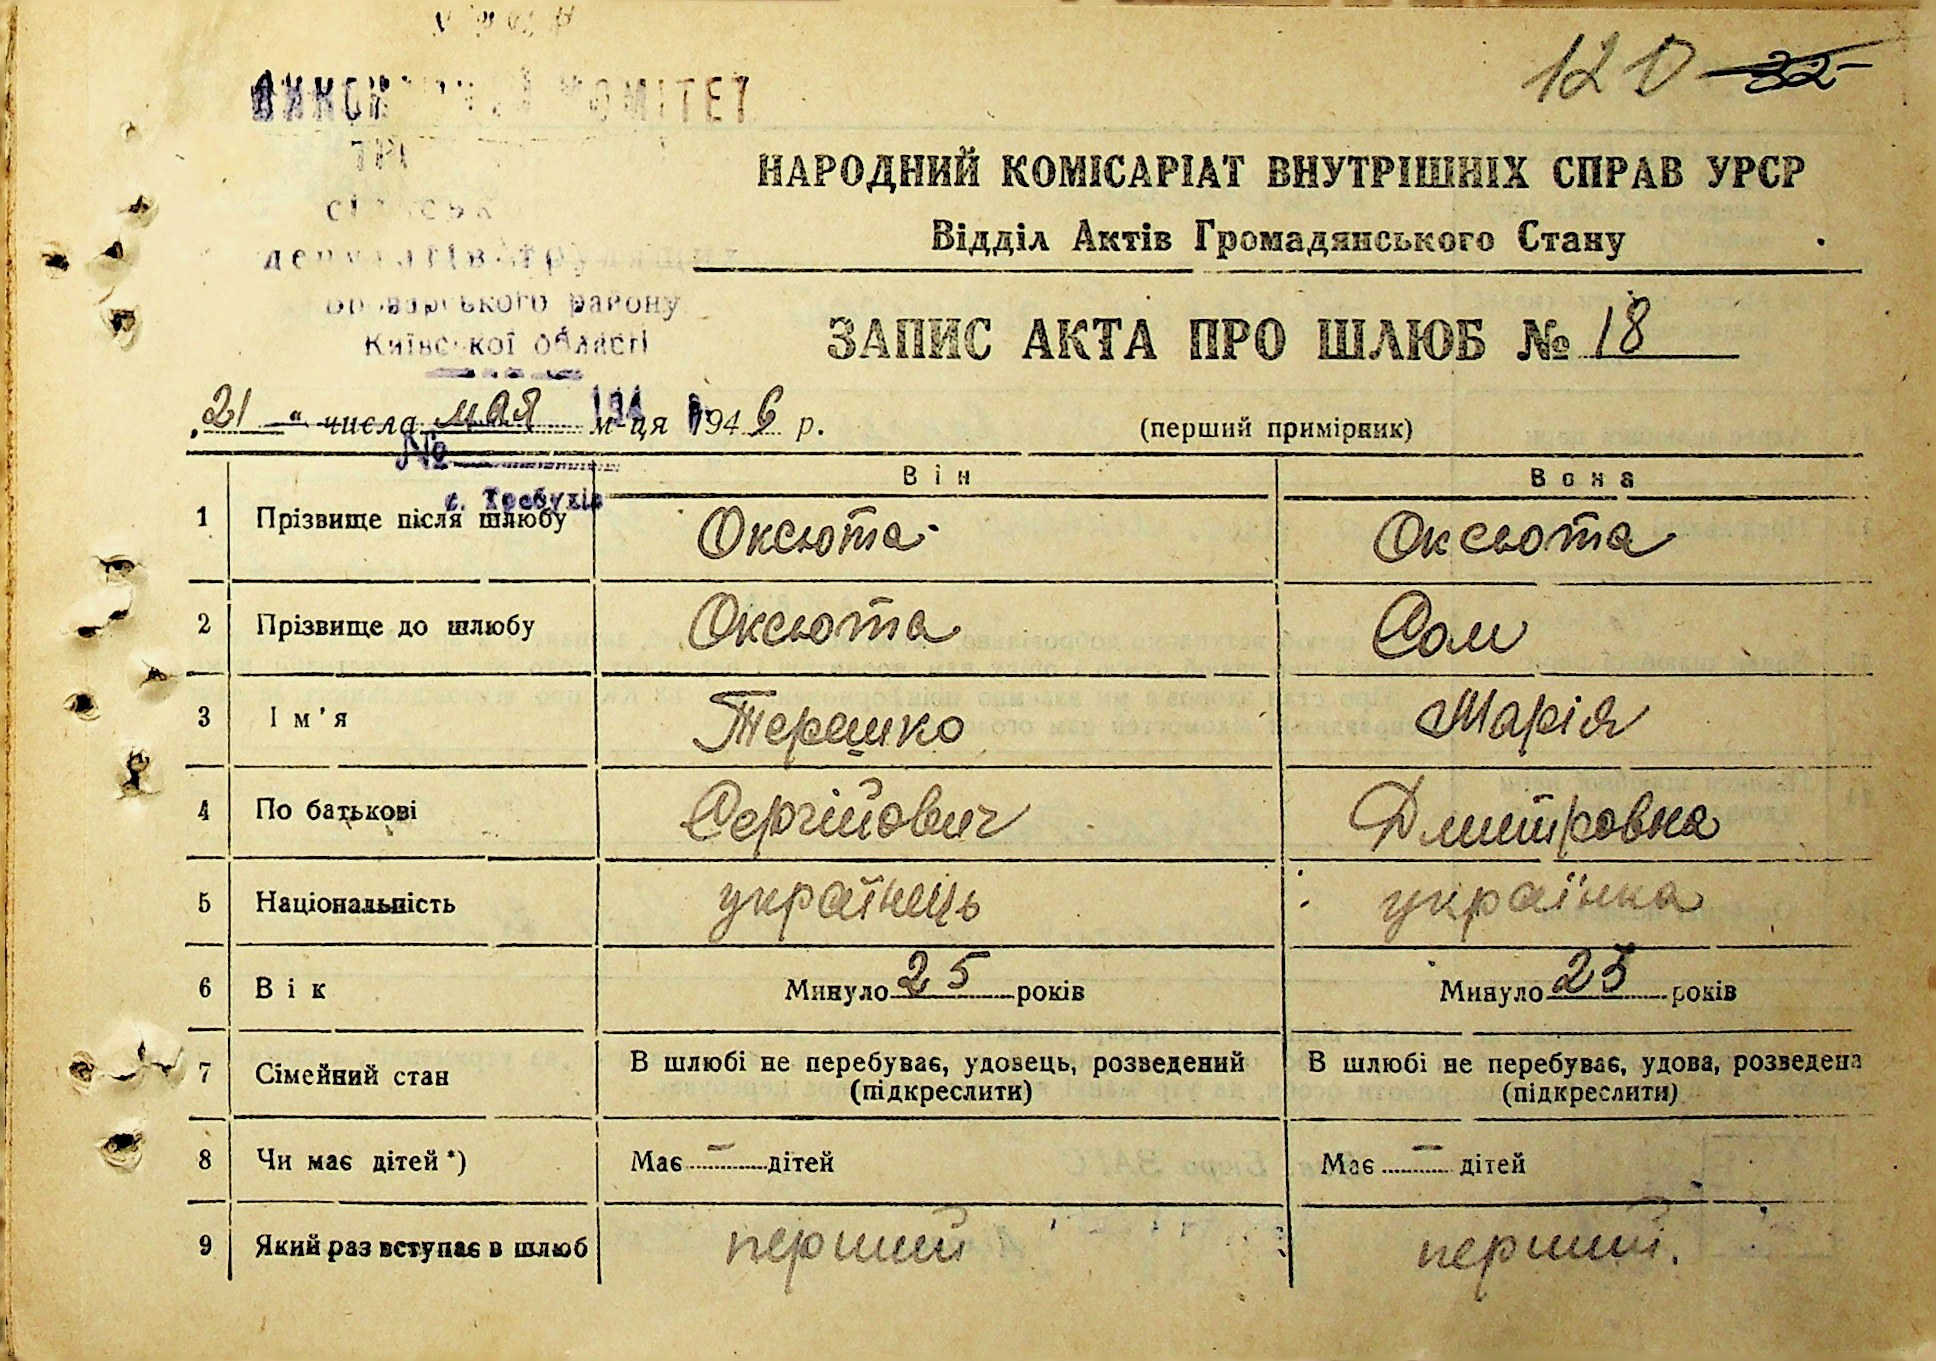 120 32
КОМІТЕТ
НАРОДНИЙ КОМІСАРІАТ ВНУТРІШНІХ СПРАВ УРСР
Відділ Актів Громадянського Стану
району
Київської області
ЗАПИС АКТА ПРО ШЛЮБ № 18
„21“ числа мая м-ця 1946 р. (перший примірник)
№
с. Требухів
Він Вона
1 Прізвище після шлюбу Оксюта Оксюта
2 Прізвище до шлюбу Оксюта Сом
3 Ім'я Терешко Марія
4 По батькові Сергійович Дмитровна
5 Національність українець українка
6 Вік Минуло 25 років Минуло 25 років
7 Сімейний стан В шлюбі не перебуває, удовець, розведений (підкреслити) В шлюбі не перебуває, удова, розведена (підкреслити)
8 Чи має дітей*) Має — дітей Має — дітей
9 Який раз вступає в шлюб перший перший.